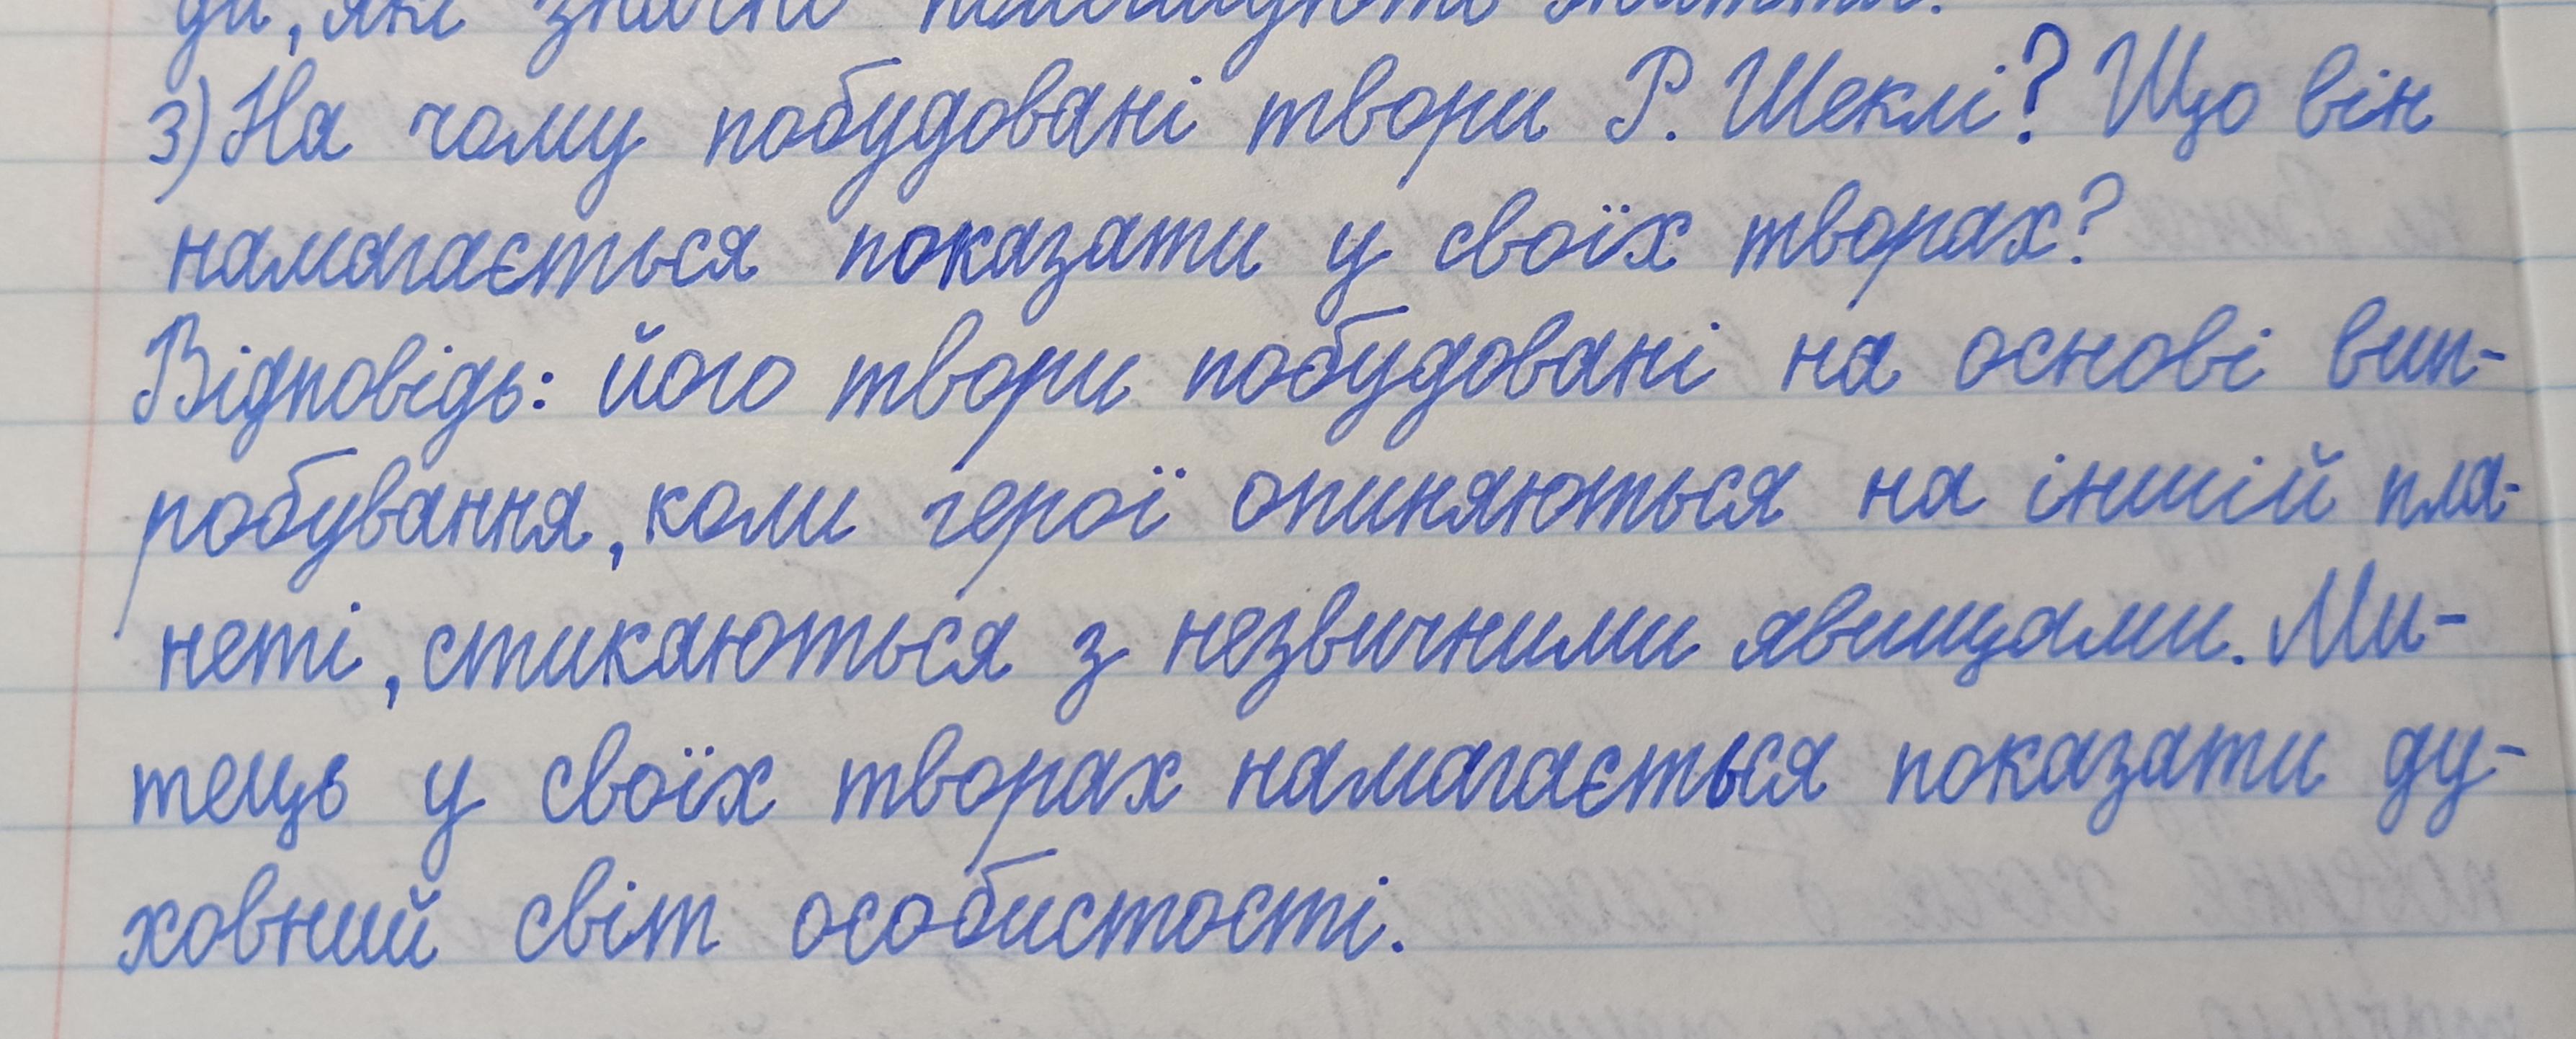 ди, які значно
3) На чому побудовані твори Р. Шеклі? Що він
намагається показати у своїх творах?
Відповідь: його твори побудовані на основі вип-
робування, коли герої опиняються на іншій пла-
неті, стикаються з незвичними явищами. Ми-
тець у своїх творах намагається показати ду-
ховний світ особистості.